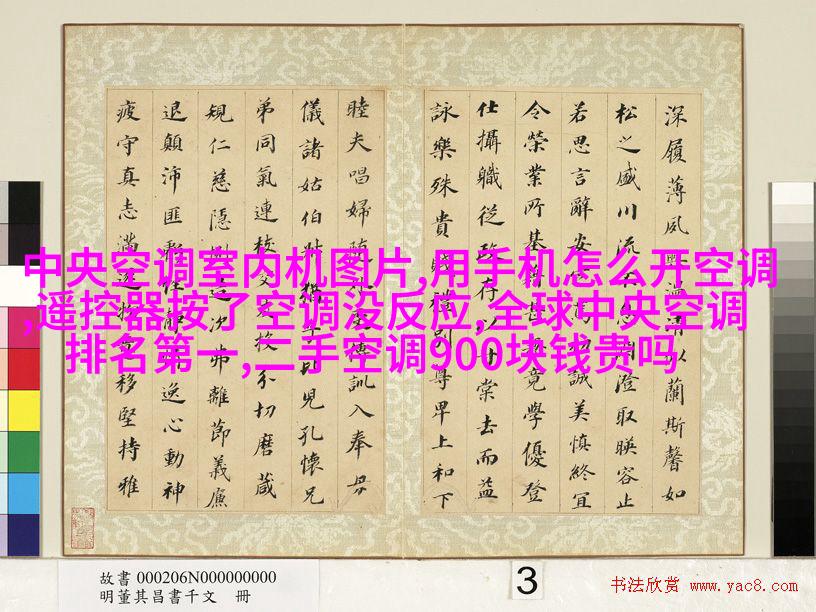 中央空调室内机图片,用手机怎么开空调
,遥控器按了空调没反应,全球中央空调
排名第一,二手空调900块钱贵吗
深履薄夙興温凊似蘭斯馨如
松之盛川流不息淵澄取暎容止
若思言辭安定篤初誠美慎終宜
令榮業所基籍甚無竟學優登
仕攝職從政存以甘棠去而益
詠樂殊貴賤禮別尊卑上和下
睦夫唱婦隨外受傅訓入奉母
儀諸姑伯叔猶子比兒孔懷兄
弟同氣連枝交友投分切磨箴
規仁慈隱惻造次弗離節義廉
退顛沛匪虧性靜情逸心動神
疲守真志滿逐物意移堅持雅
故書 000206N000000000
明董其昌書千文 冊
3
书法欣赏 www.yac8.com